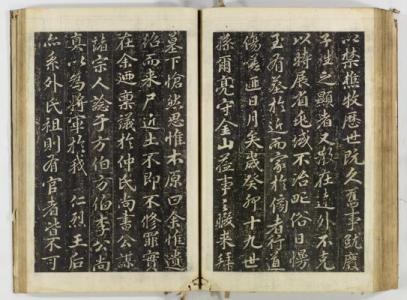 以禁樵牧歷世既久舊事既廢
子姓之顯者又散在遠外不克
以時展省兆域不治氓俗日慢
至有墓於近而家於側者行道
傷嗟匪日月矣歲癸卯十九世
孫爾亮守金山莅事之暇來拜
墓下愴然思惟本原曰余惟遺
而來尸近土不即不修罪實
在余迺稟議於仲氏尚書公謀
諸宗人諗于方伯方伯李公尚
真以為將軍於我 仁烈王后
亦系外氏祖則有官者豈不可